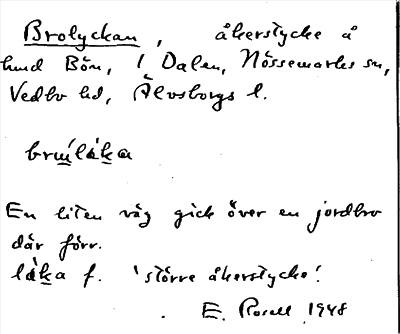 Brolyckan, åkerstycke å
hmd Bön, i Dalen, Nössemarks sn,
Vedbo hd, Älvsborgs l.
En liten väg gick över en jordbro
där förr.
f. 'större åkerstycke'.
E. Rosell 1948